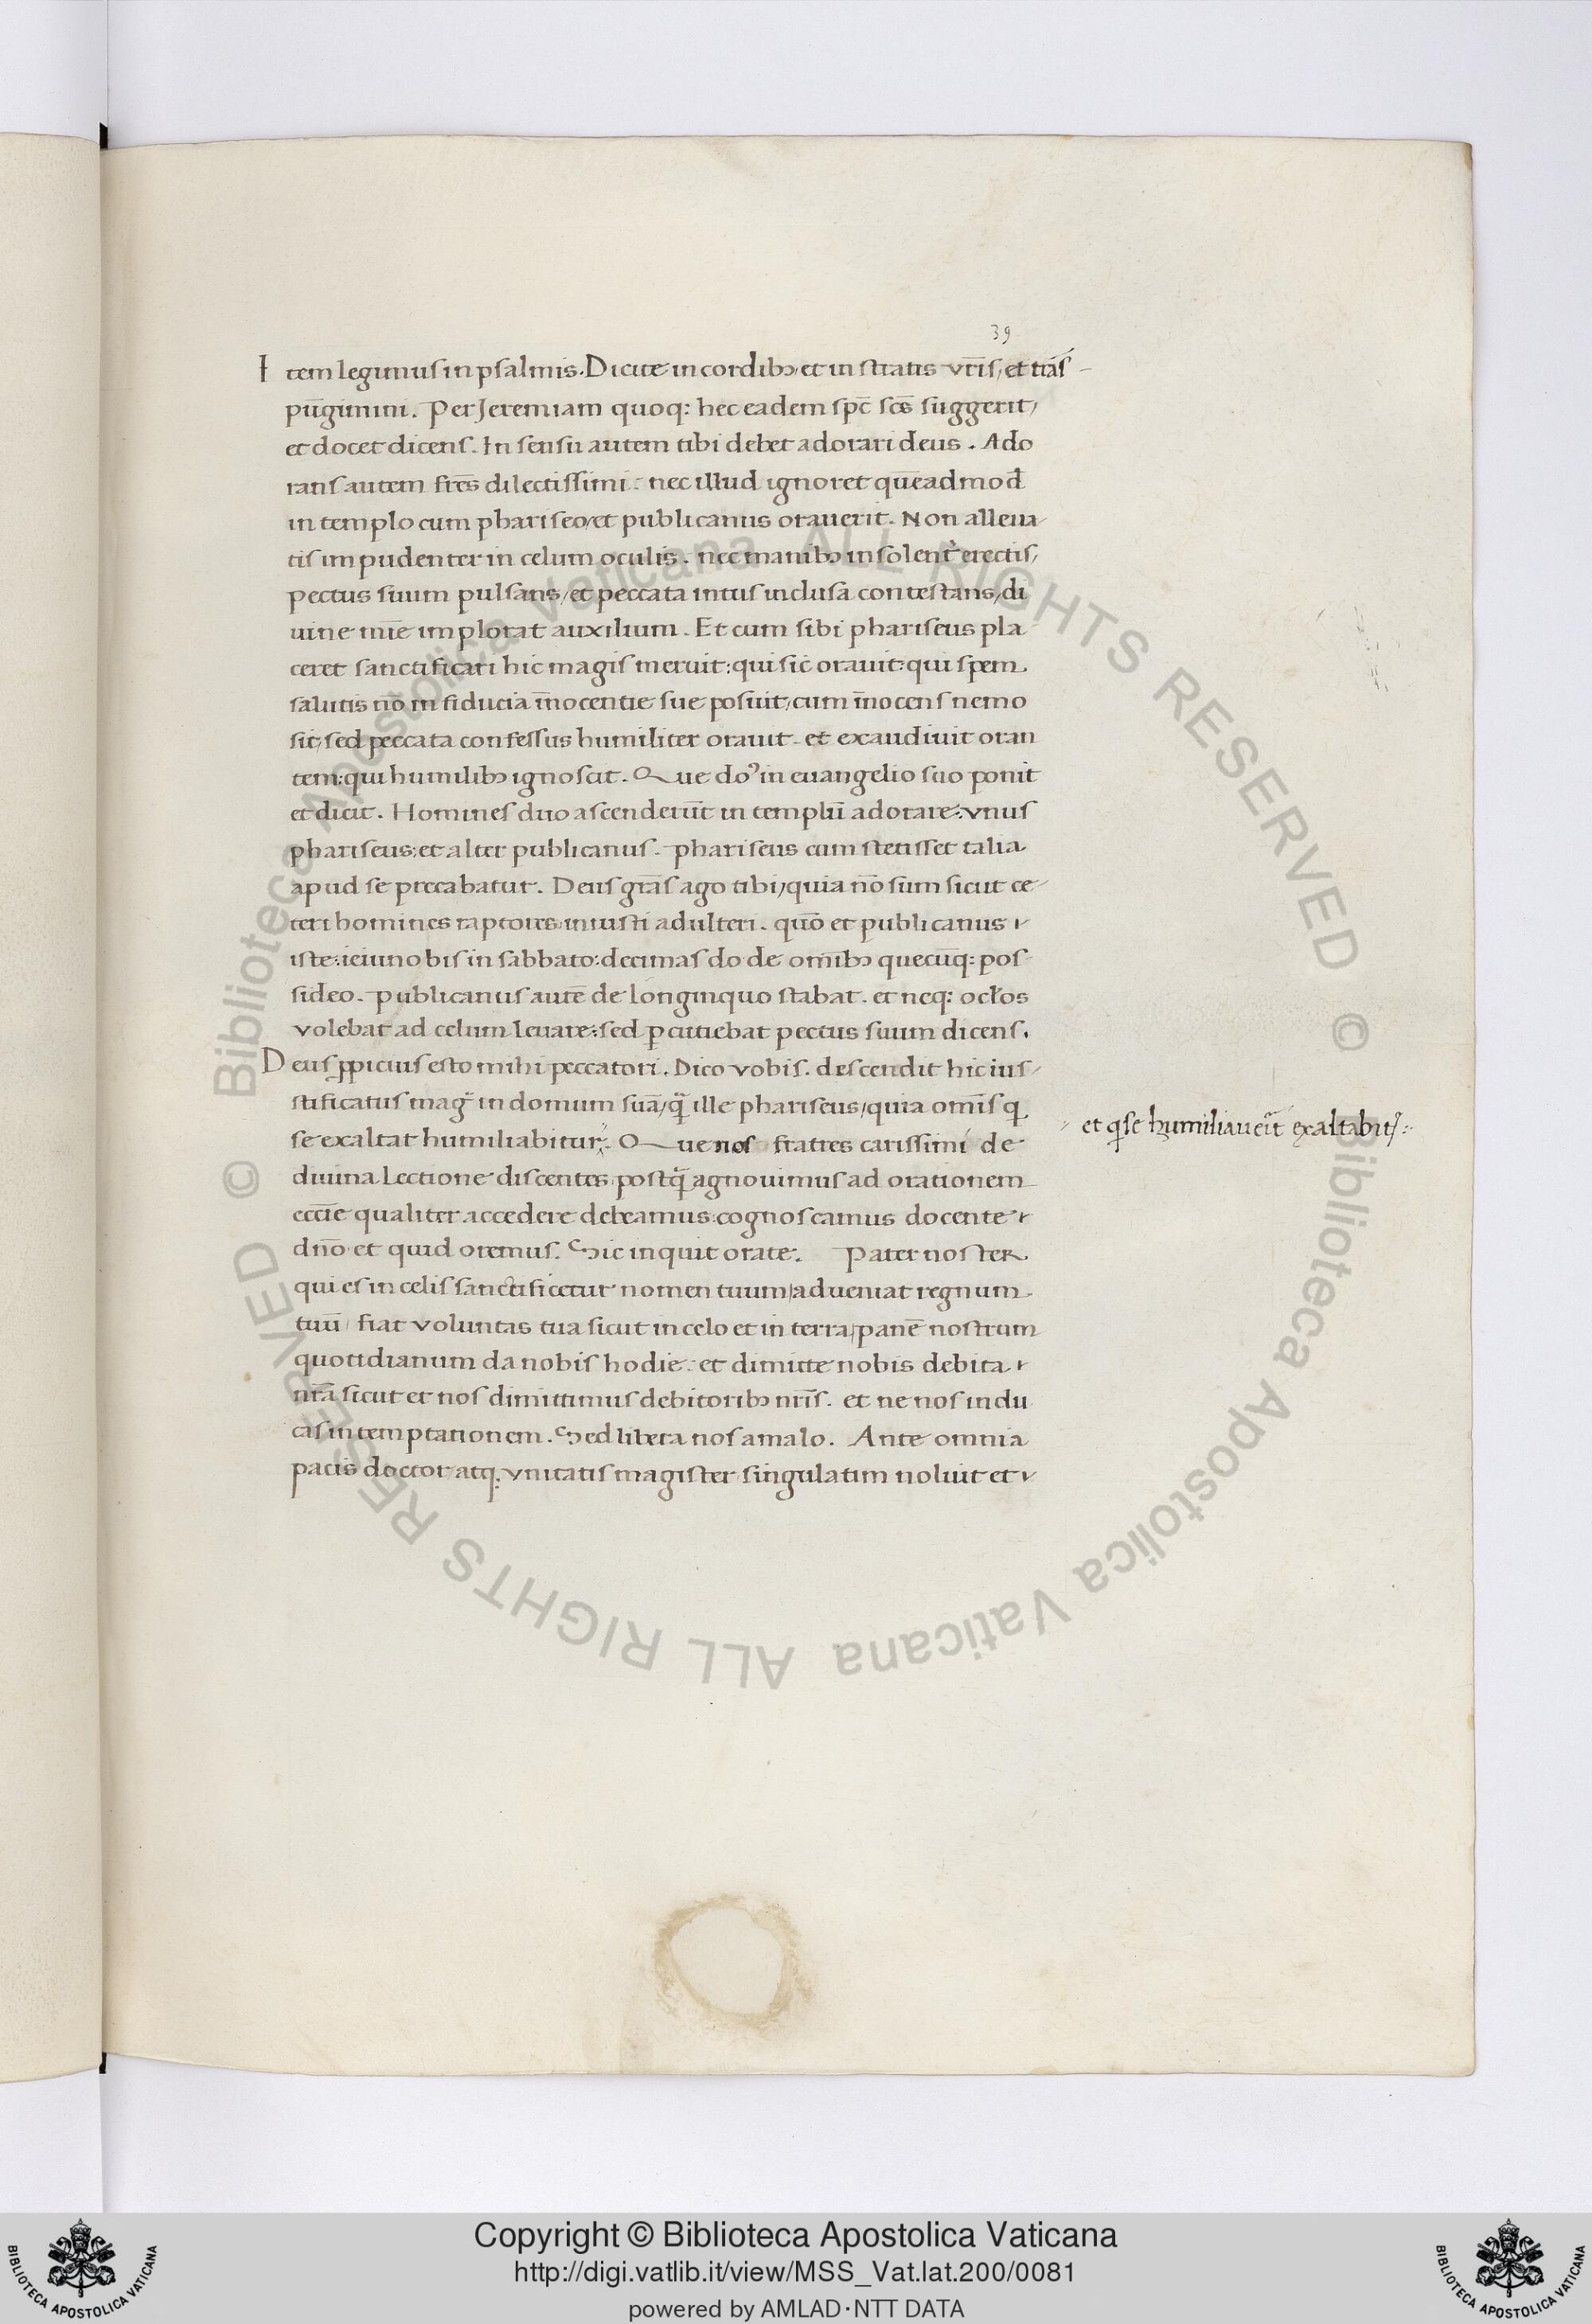 39
Item legimus in psalmis. Dicite in cordibꝫ et in stratis vr̄is, et trās
pūgimini. Per Jeremiam quoqꝫ hec eadem spc̄ scs̄ suggerit,
et docet dicens. In sensu autem tibi debet adorari deus. Ado
rans autem frēs dilectissimi: nec illud ignoret quēadmod̄
in templo cum phariseo, et publicanus orauerit. Non alleua
tis impudenter in celum oculis. nec manibꝫ insolent̾ erectis,
pectus suum pulsans, et peccata intus inclusa contestans, di
uine mīe implorat auxilium. Et cum sibi phariseus pla
ceret sanctificari hic magis meruit: qui sic orauit: qui spem
salutis nō in fiducia īnocentie sue posuit, cum īnocens nemo
sit, sed peccata confessus humiliter orauit. et exaudiuit oran
tem: qui humilibꝫ ignoscit. Que do᷒ in euangelio suo ponit
et dicit. Homines duo ascenderūt in templū adorare: vnus
phariseus, et alter publicanus. phariseus cum stetisset talia
apud se precabatur. Deus grās ago tibi, quia nō sum sicut ce
teri homines raptores iniusti adulteri. quō et publicanus
iste: ieiuno bis in sabbato: decimas do de omībꝫ quecūqꝫ pos
sideo. publicanus autē de longinquo stabat. et neqꝫ ocłos
volebat ad celum leuare: sed ꝑcutiebat pectus suum dicens.
Deus ꝓpicius esto mihi peccatori. Dico vobis. descendit hic ius
stificatus mag̾ in domum suā, q̄ ille phariseus, quia omīs q
se exaltat humiliabitur. Que nos fratres carissimi de
diuina Lectione discentes postq̄ agnouimus ad orationem
eccīe qualiter accedere debeamus: cognoscamus docente
dn̄o et quid oremus. Sic inquit orate. Pater noster
qui es in celis sanctificetur nomen tuum, adueniat regnum
tuū fiat voluntas tua sicut in celo et in terra, panē nostrum
quotidianum da nobis hodie. et dimitte nobis debita
nrā sicut et nos dimittimus debitoribꝫ nrīs. et ne nos indu
cas in temptationem. Sed libera nos a malo. Ante omnia
pacis doctor atqꝫ vnitatis magister singulatim noluit et
et q se humiliaueīt exaltabit᷑
Copyright © Biblioteca Apostolica Vaticana
http://digi.vatlib.it/view/MSS_Vat.lat.200/0081
powered by AMLAD·NTT DATA
BIBLIOTECA APOSTOLICA VATICANA
BIBLIOTECA APOSTOLICA VATICANA
© Biblioteca Apostolica Vaticana ALL RIGHTS RESERVED
© Biblioteca Apostolica Vaticana ALL RIGHTS RESERVED